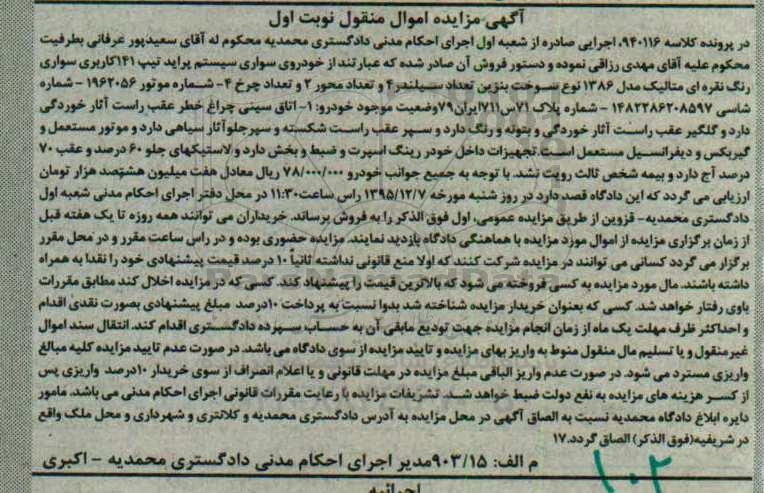 آگهی مزایده اموال منقول نوبت اول
در پرونده کلاسه ۹۴۰۱۱۶، اجرایی صادره از شعبه اول اجرای احکام مدنی دادگستری محمدیه محکوم له آقای سعیدپور عرفانی بطرفیت
محکوم علیه آقای مهدی رزاقی نموده و دستور فروش آن صادر شده که عبارتند از خودروی سواری سیستم پراید تیپ ۱۴۱کاربری سواری
رنگ نقره ای متالیک مدل ۱۳۸۶ نوع سوخت بنزین تعداد سیلندر۴ و تعداد محور ۲ و تعداد چرخ ۴- شماره موتور ۱۹۶۲۰۵۶ - شماره
شاسی ۱۴۸۲۲۸۶۲۰۸۵۹۷ - شماره پلاک ۷۱س۷۱۱ایران۷۹وضعیت موجود خودرو: ۱- اتاق سینی چراغ خطر عقب راست آثار خوردگی
دارد و گلگیر عقب راست آثار خوردگی و بتونه و رنگ دارد و سپر عقب راست شکسته و سپرجلوآثار سیاهی دارد و موتور مستعمل و
گیربکس و دیفرانسیل مستعمل است تجهیزات داخل خودر رینگ اسپرت و ضبط و پخش دارد و لاستیکهای جلو ۶۰ درصد و عقب ۷۰
درصد آج دارد و بیمه شخص ثالث رویت نشد. با توجه به جمیع جوانب خودرو ۷۸/۰۰۰/۰۰۰ ریال معادل هفت میلیون هشتصد هزار تومان
ارزیابی می گردد که این دادگاه قصد دارد در روز شنبه مورخه ۱۳۹۵/۱۲/۷ راس ساعت۱۱:۳۰ در محل دفتر اجرای احکام مدنی شعبه اول
دادگستری محمدیه- قزوین از طریق مزایده عمومی، اول فوق الذکر را به فروش برساند. خریداران می توانند همه روزه تا یک هفته قبل
از زمان برگزاری مزایده از اموال مورد مزایده با هماهنگی دادگاه بازدید نمایند. مزایده حضوری بوده و در راس ساعت مقرر و در محل مقرر
برگزار می گردد کسانی می توانند در مزایده شرکت کنند که اولا منع قانونی نداشته ثانیاً ۱۰ درصد قیمت پیشنهادی خود را نقدا به همراه
داشته باشند. مال مورد مزایده به کسی فروخته می شود که بالاترین قیمت را پیشنهاد کند. کسی که در مزایده اخلال کند مطابق مقررات
باوی رفتار خواهد شد. کسی که بعنوان خریدار مزایده شناخته شد بدوا نسبت به پرداخت ۱۰درصد مبلغ پیشنهادی بصورت نقدی اقدام
و احداکثر ظرف مهلت یک ماه از زمان انجام مزایده جهت تودیع مابقی آن به حساب سپرده دادگستری اقدام کند. انتقال سند اموال
غیرمنقول و یا تسلیم مال منقول منوط به واریز بهای مزایده و تایید مزایده از سوی دادگاه می باشد. در صورت عدم تایید مزایده کلیه مبالغ
واریزی مسترد می شود. در صورت عدم واریز الباقی مبلغ مزایده در مهلت قانونی و یا اعلام انصراف از سوی خریدار ۱۰درصد واریزی پس
از کسر هزینه های مزایده به نفع دولت ضبط خواهد شد. تشریفات مزایده با رعایت مقررات قانونی اجرای احکام مدنی می باشد. مامور
دایره ابلاغ دادگاه محمدیه نسبت به الصاق آگهی در محل مزایده به آدرس دادگستری محمدیه و کلانتری و شهرداری و محل ملک واقع
در شریفیه(فوق الذکر) الصاق گردد.۱۷
م الف: ۹۰۳/۱۵مدیر اجرای احکام مدنی دادگستری محمدیه - اکبری
۱۰۲
اجرائیه